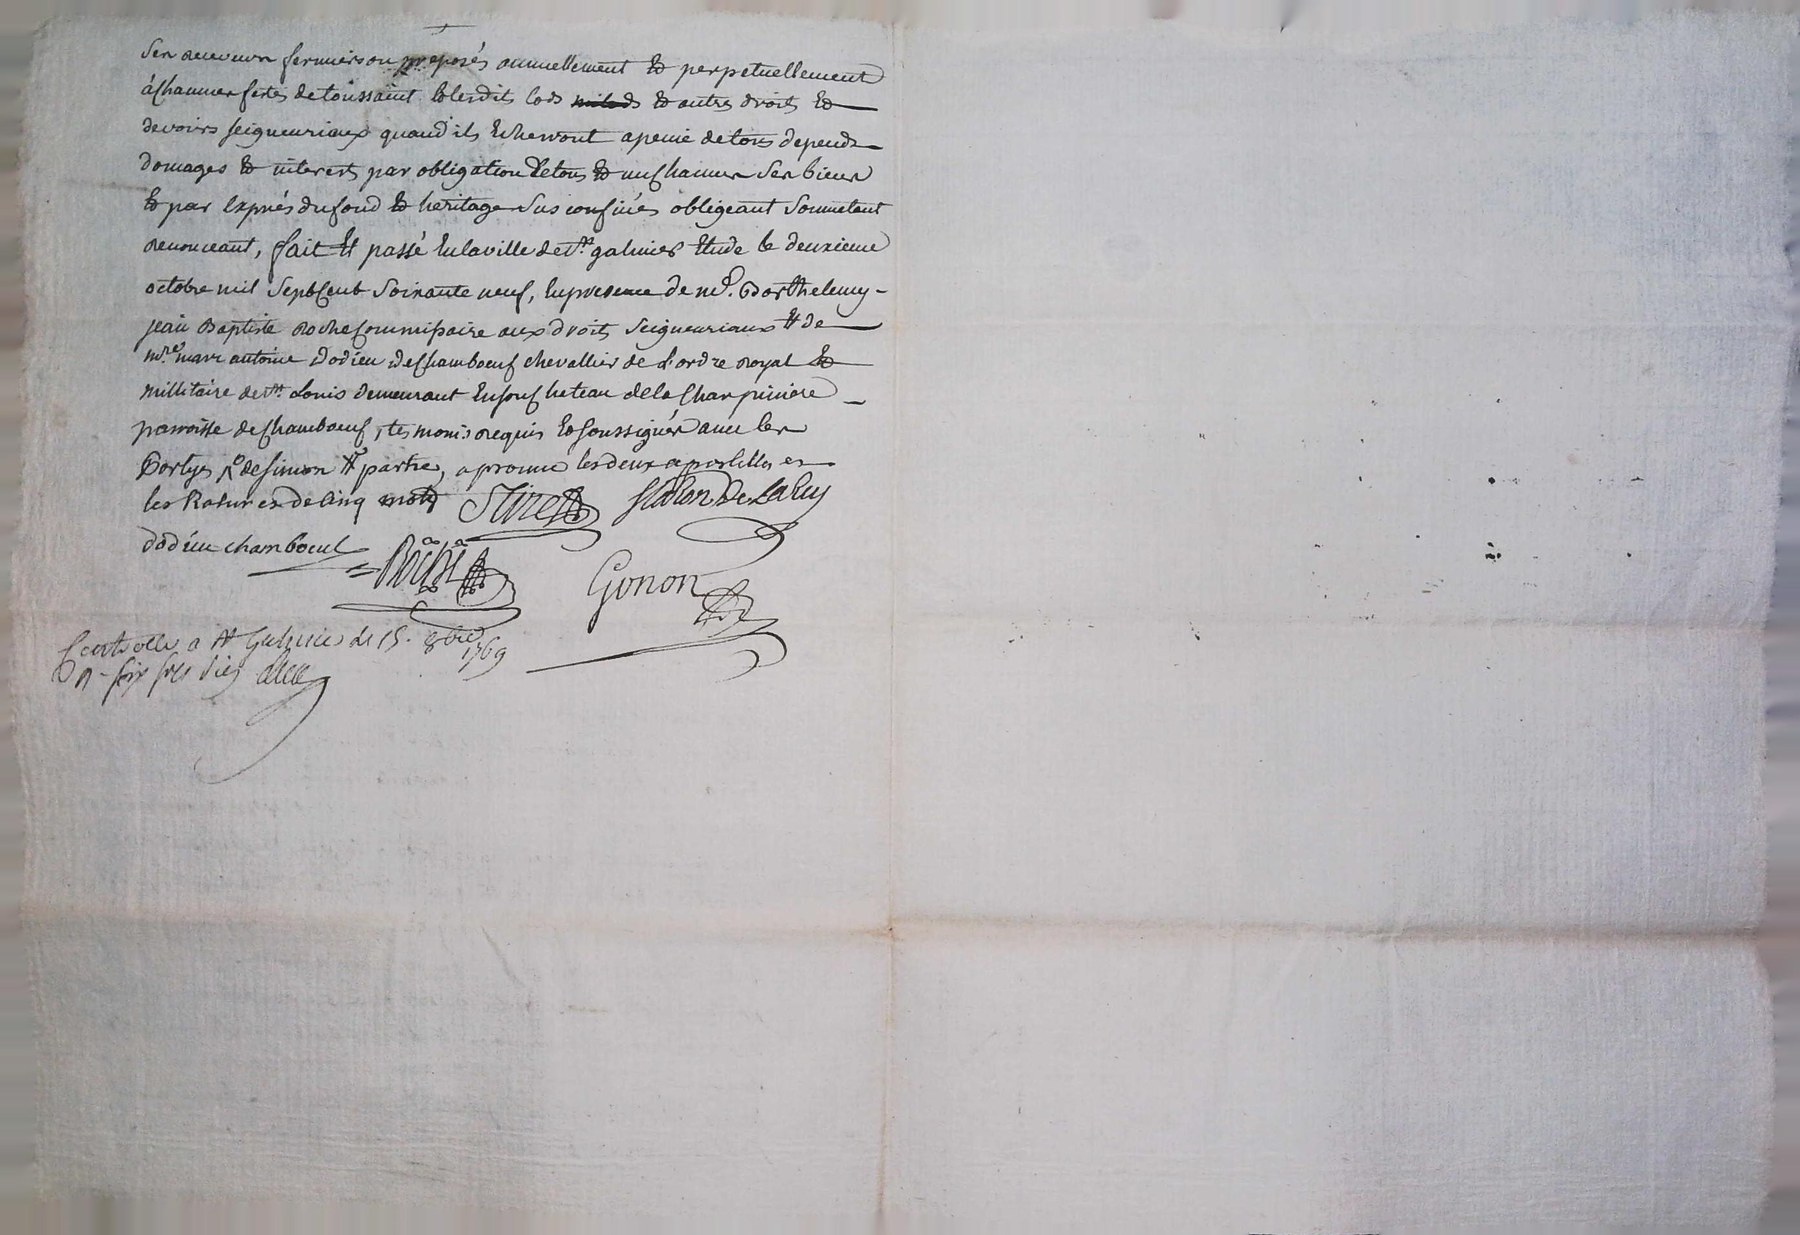 ses receveurs fermiers ou preposés annuellement & perpetuellement
à chaunes festes de toussaint & lesdits lods milods & autres droits &
devoirs seigneuriaux quand ils echerront a peine de tous depends
domages & interests par obligation de tous & un chaunes ses biens
& par exprés du fond & heritage sus confinés obligeant soumetant
renonceant, fait et passé en la ville de st. galmier Etude le deuxieme
octobre mil sept cent soixante neuf, en presence de me. Barthelemy
jean Baptiste Roche commissaire aux droits seigneuriaux et de
mre. marc antoine dodieu de chamboeuf chevallier de l'ordre royal &
millitaire de st. Louis demeurant en son chateau de la charpiniere
parroisse de chamboeuf, temoins requis & soussignés avec les
partyes aprouvé les deux apostilles et
les Ratures de cinq mots
dodieu chamboeuf Roche Gonon
Controllé a st Galmier le 15. 8bre 1769